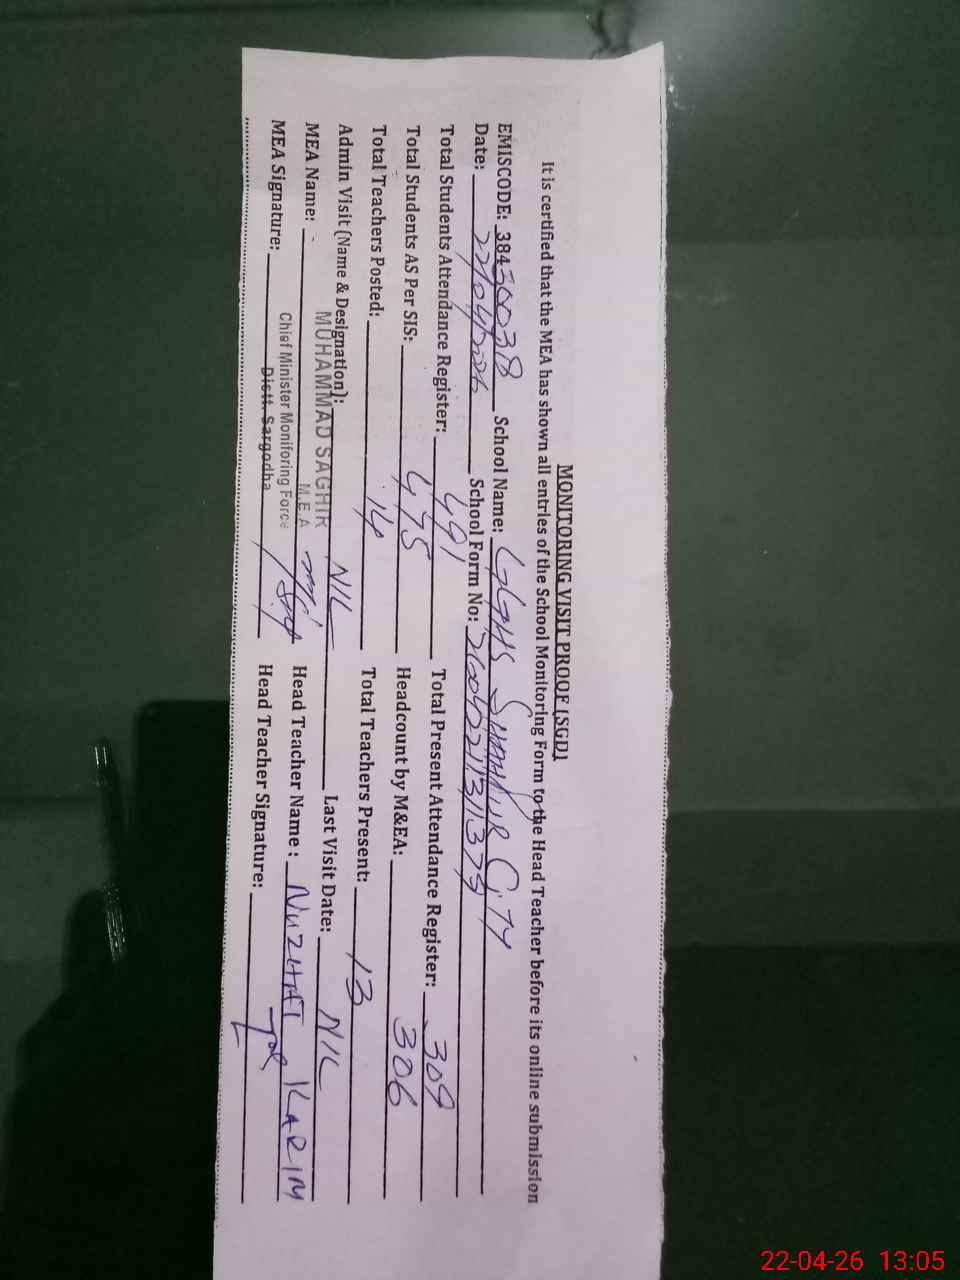 MONITORING VISIT PROOF (SGD)
It is certified that the MEA has shown all entries of the School Monitoring Form to the Head Teacher before its online submission
EMISCODE: 38430038 School Name: GGHS SHAHPUR CITY
Date: 22/04/2026 School Form No:
Total Students Attendance Register: 491 Total Present Attendance Register: 309
Total Students AS Per SIS: 475 Headcount by M&EA: 306
Total Teachers Posted: 14 Total Teachers Present: 13
Admin Visit (Name & Designation): NIL Last Visit Date: NIL
MUHAMMAD SAGHIR
MEA Name: M.E.A Head Teacher Name: NUZHAT KARIM
Chief Minister Moniforing Force
MEA Signature: Distt. Sargodha Head Teacher Signature:
22-04-26 13:05